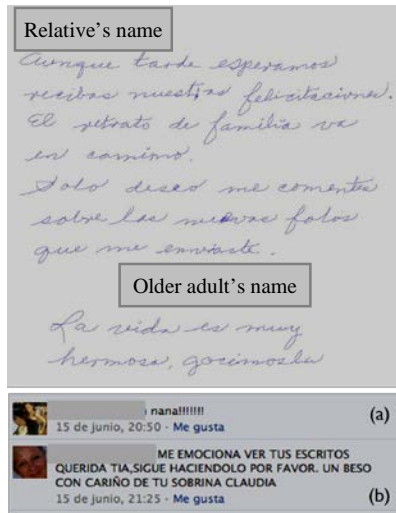 Relative's name
Aunque tarde esperamos
recibas nuestras felicitaciones.
El retrato de familia va
en camino.
Solo deseo me comentes
sobre las nuevas fotos
que me enviaste.
Older adult's name
La vida es muy
hermosa, gocimosla
nana!!!!!!! (a)
15 de junio, 20:50 · Me gusta
ME EMOCIONA VER TUS ESCRITOS
QUERIDA TIA,SIGUE HACIENDOLO POR FAVOR. UN BESO
CON CARIÑO DE TU SOBRINA CLAUDIA
15 de junio, 21:25 · Me gusta (b)